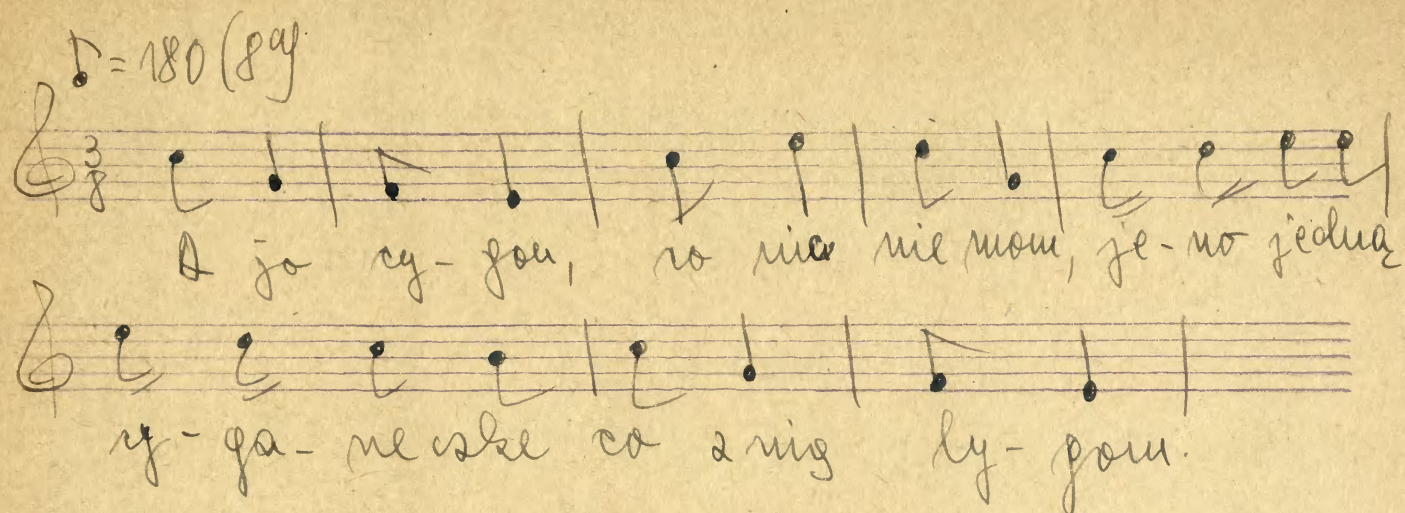 ♪ = 180 (8")
3
8
A jo cy-gon, co nic nie mom, je-no jedną
cy-ga-neczke co z nią ly-gom.